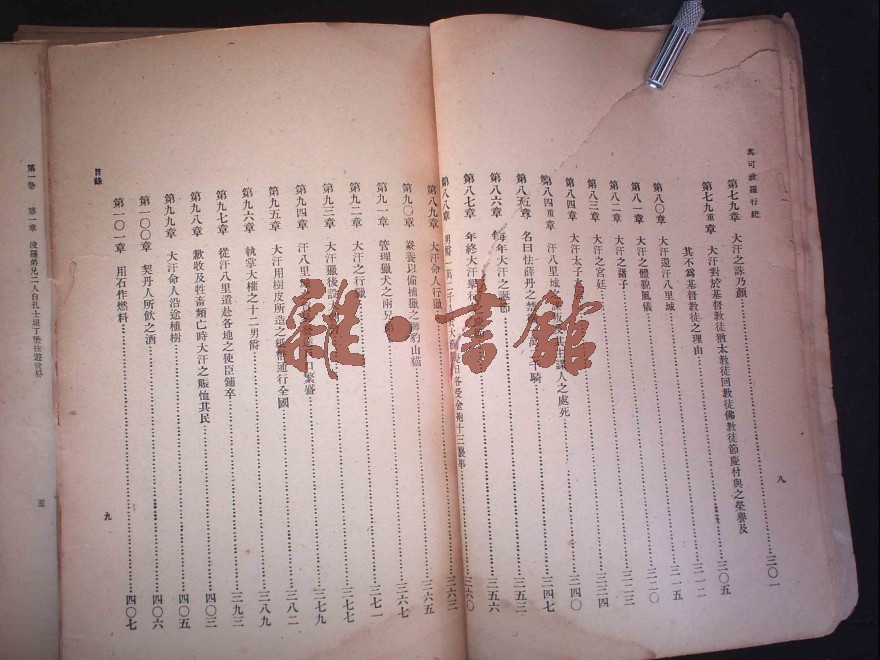 馬可波羅行紀
第七九章 大汗之誅乃顏 三〇一
第七九重章 大汗對於基督教徒猶太教徒回教徒佛教徒節慶付與之榮譽及
其不為基督教徒之理由 三〇五
第八〇章 大汗還汗八里城 三一二
第八一章 大汗之體貌風儀 三一五
第八二章 大汗之諸子 三二〇
第八三章 大汗之宮廷 三二三
第八四章 大汗太子之宮 三三四
第八四重章 汗八里城 主謀人之處死 三四〇
第八五章 名曰怯薛丹之禁 千騎 三四七
第八六章 每年大汗之誕節 三五三
第八七章 年終大汗舉行 三五六
第八八章 男爵一萬二千 大節 各受金袍十三襲事 三六〇
第八九章 大汗命人行獵 三六三
第九〇章 豢養以備捕獵之獅豹山貓 三六五
第九一章 管理獵犬之兩兄弟 三六七
第九二章 大汗之行獵 三七一
第九三章 大汗獵後設 三七七
第九四章 汗八里城 口繁盛 三七九
第九五章 大汗用樹皮所造之紙幣通行全國 三八二
第九六章 執掌大權之十二男爵 三八九
第九七章 從汗八里遣赴各地之使臣鋪卒 三九三
第九八章 歉收及牲畜頻亡時大汗之賑恤其民 四〇三
第九九章 大汗命人沿途植樹 四〇五
第一〇〇章 契丹人所飲之酒 四〇六
第一〇一章 用石作燃料 四〇七
八
目錄
九
第一卷 第二章 波羅弟兄二人自孔士坦丁堡往遊世界
五
雜·書館